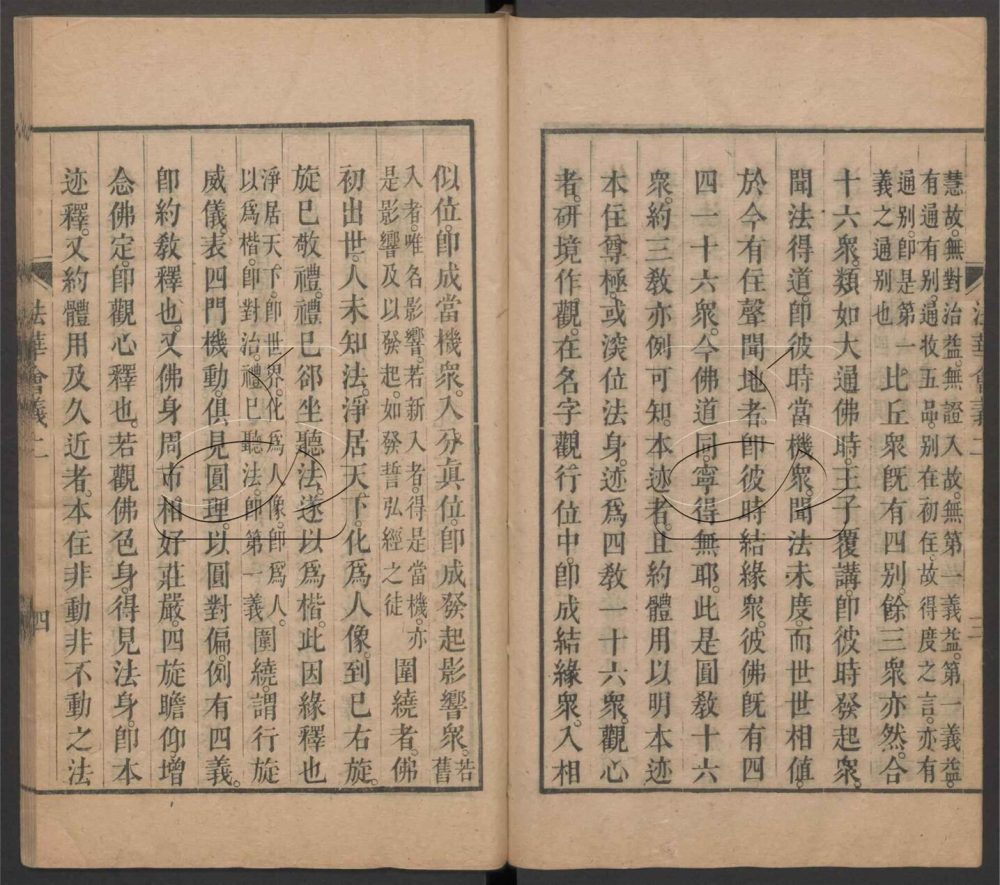 慧故。無對治益。無證入故。無第一義益。第一義益。
有通有別。通收五品。別在初住。故得度之言。亦有
通別。即是第一
義之通別也。比丘衆旣有四別。餘三衆亦然。合
十六衆。類如大通佛時。王子覆講。即彼時發起衆。
聞法得道。即彼時當機衆。聞法未度。而世世相値。
於今有住聲聞地者。即彼時結緣衆。彼佛旣有四
四一十六衆。今佛道同。寧得無耶。此是圓敎十六
衆。約三敎亦例可知。本迹者。且約體用以明本迹
本住尊極。或深位法身。迹爲四敎一十六衆。觀心
者。研境作觀。在名字觀行位中。即成結緣衆。入相
三
似位。即成當機衆。入分眞位。即成發起影響衆。若舊
入者。唯名影響。若新入者。得是當機。亦
是影響及以發起。如發誓弘經之徒
圍繞者。佛
初出世。人未知法。淨居天下。化爲人像。到已右旋。
旋已敬禮。禮已郤坐聽法。遂以爲楷。此因緣釋也
淨居天下。即世界。化爲人像。即爲人。
以爲楷。即對治。禮已聽法。即第一義
圍繞。謂行旋
威儀。表四門機動。俱見圓理。以圓對偏。例有四義。
即約敎釋也。又佛身周帀相好莊嚴。四旋瞻仰增
念佛定。即觀心釋也。若觀佛色身。得見法身。即本
迹釋。又約體用及久近者。本住非動非不動之法
法華會義二
四